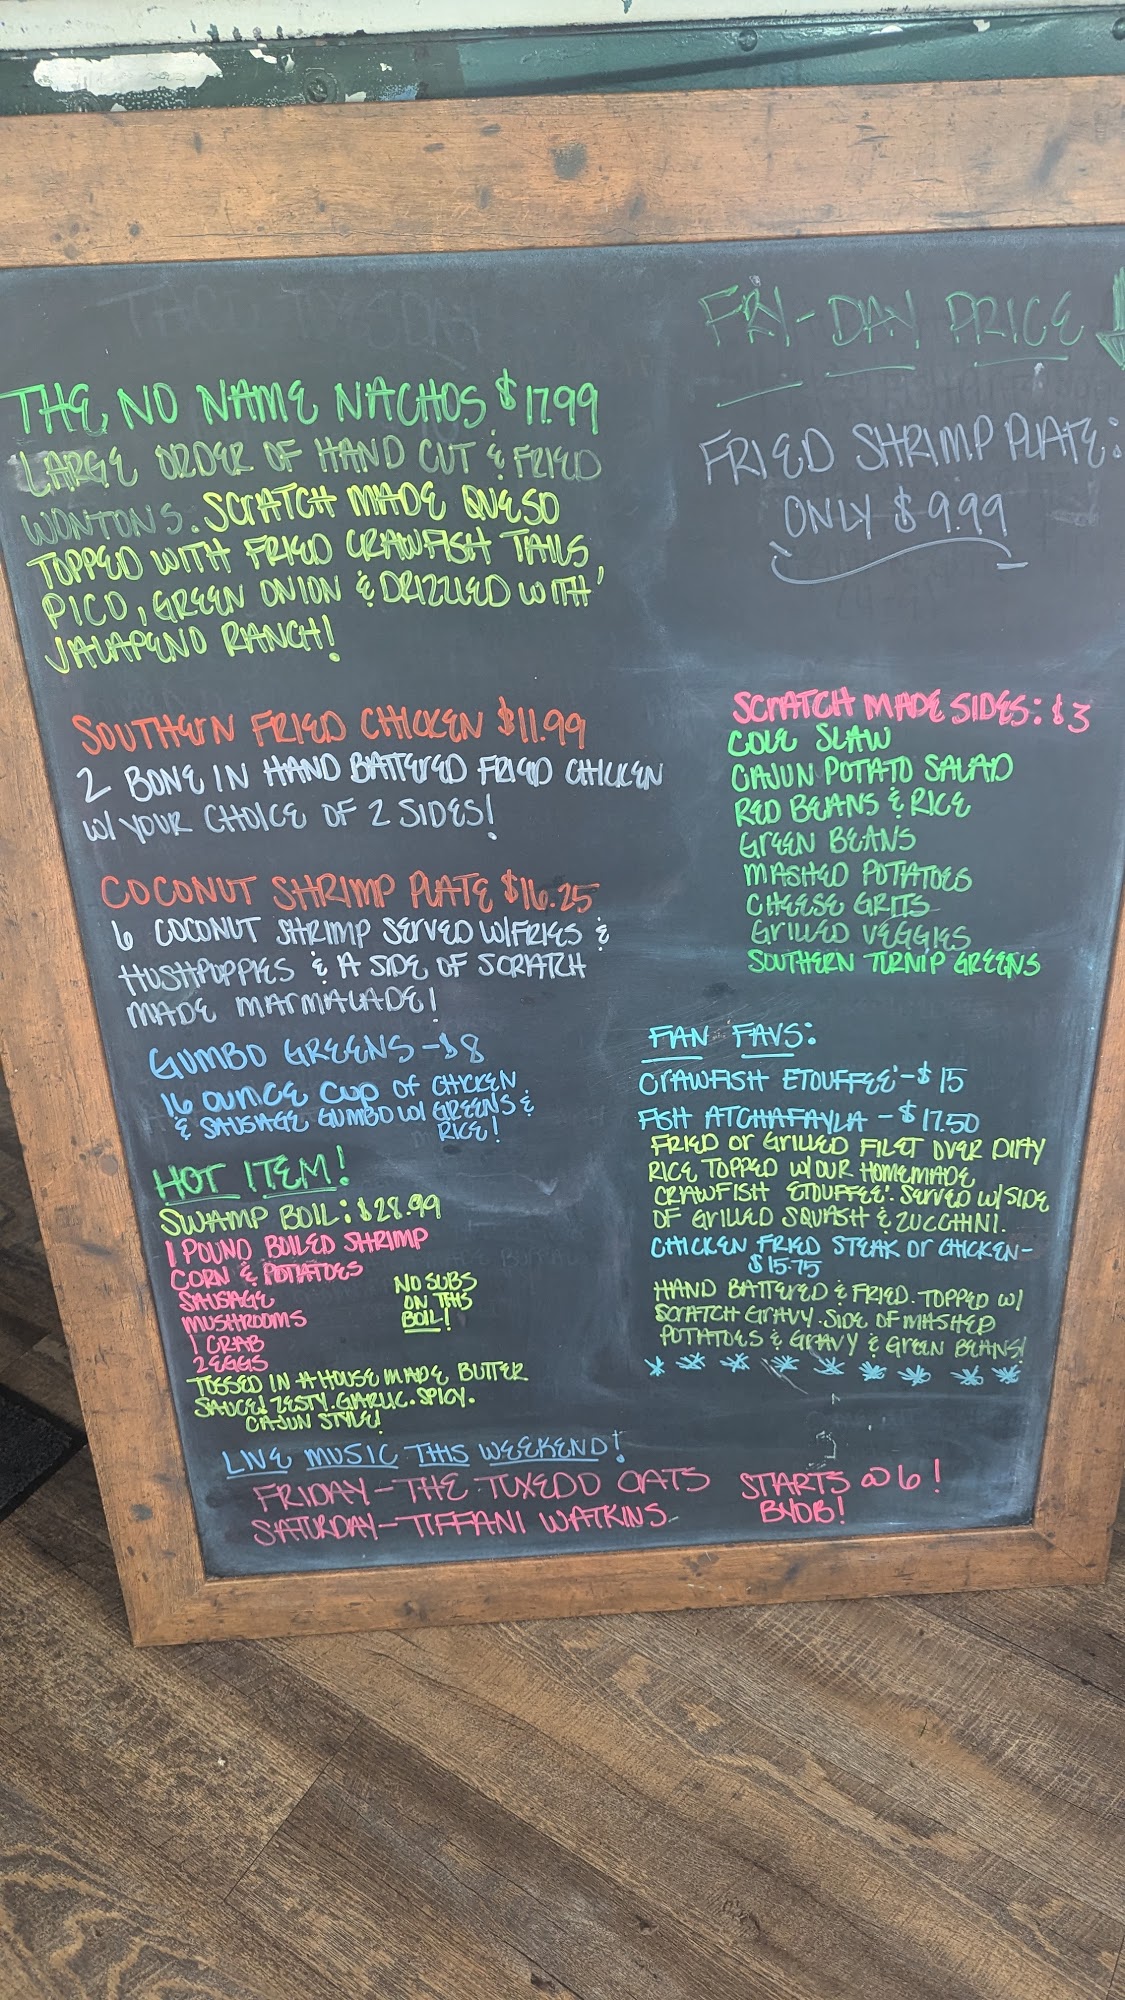 TACO TUESDAY
THE NO NAME NACHOS $17.99
LARGE ORDER OF HAND CUT & FRIED
WONTONS. SCRATCH MADE QUESO
TOPPED WITH FRIED CRAWFISH TAILS,
PICO, GREEN ONION & DRIZZLED WITH
JALAPENO RANCH!
SOUTHERN FRIED CHICKEN $11.99
2 BONE IN HAND BATTERED FRIED CHICKEN
W/ YOUR CHOICE OF 2 SIDES!
COCONUT SHRIMP PLATE $16.25
6 COCONUT SHRIMP SERVED W/FRIES &
HUSHPUPPIES & A SIDE OF SCRATCH
MADE MARMALADE!
GUMBO GREENS - $8
16 OUNCE CUP OF CHICKEN
& SAUSAGE GUMBO W/ GREENS &
RICE!
HOT ITEM!
SWAMP BOIL: $28.99
1 POUND BOILED SHRIMP
CORN & POTATOES
SAUSAGE
MUSHROOMS
1 CRAB
2 EGGS
NO SUBS
ON THIS
BOIL!
TOSSED IN A HOUSE MADE BUTTER
SAUCE! ZESTY. GARLIC. SPICY.
CAJUN STYLE!
FRY-DAY PRICE
FRIED SHRIMP PLATE:
ONLY $9.99
SCRATCH MADE SIDES: $3
COLE SLAW
CAJUN POTATO SALAD
RED BEANS & RICE
GREEN BEANS
MASHED POTATOES
CHEESE GRITS
GRILLED VEGGIES
SOUTHERN TURNIP GREENS
FAN FAVS:
CRAWFISH ETOUFFEE' - $15
FISH ATCHAFAYLA - $17.50
FRIED OR GRILLED FILET OVER DIRTY
RICE TOPPED W/ OUR HOMEMADE
CRAWFISH ETOUFFEE'. SERVED W/ SIDE
OF GRILLED SQUASH & ZUCCHINI.
CHICKEN FRIED STEAK OR CHICKEN -
$15.75
HAND BATTERED & FRIED. TOPPED W/
SCRATCH GRAVY. SIDE OF MASHED
POTATOES & GRAVY & GREEN BEANS!
LIVE MUSIC THIS WEEKEND!
FRIDAY - THE TUXEDO CATS STARTS @ 6!
SATURDAY - TIFFANI WATKINS BYOB!